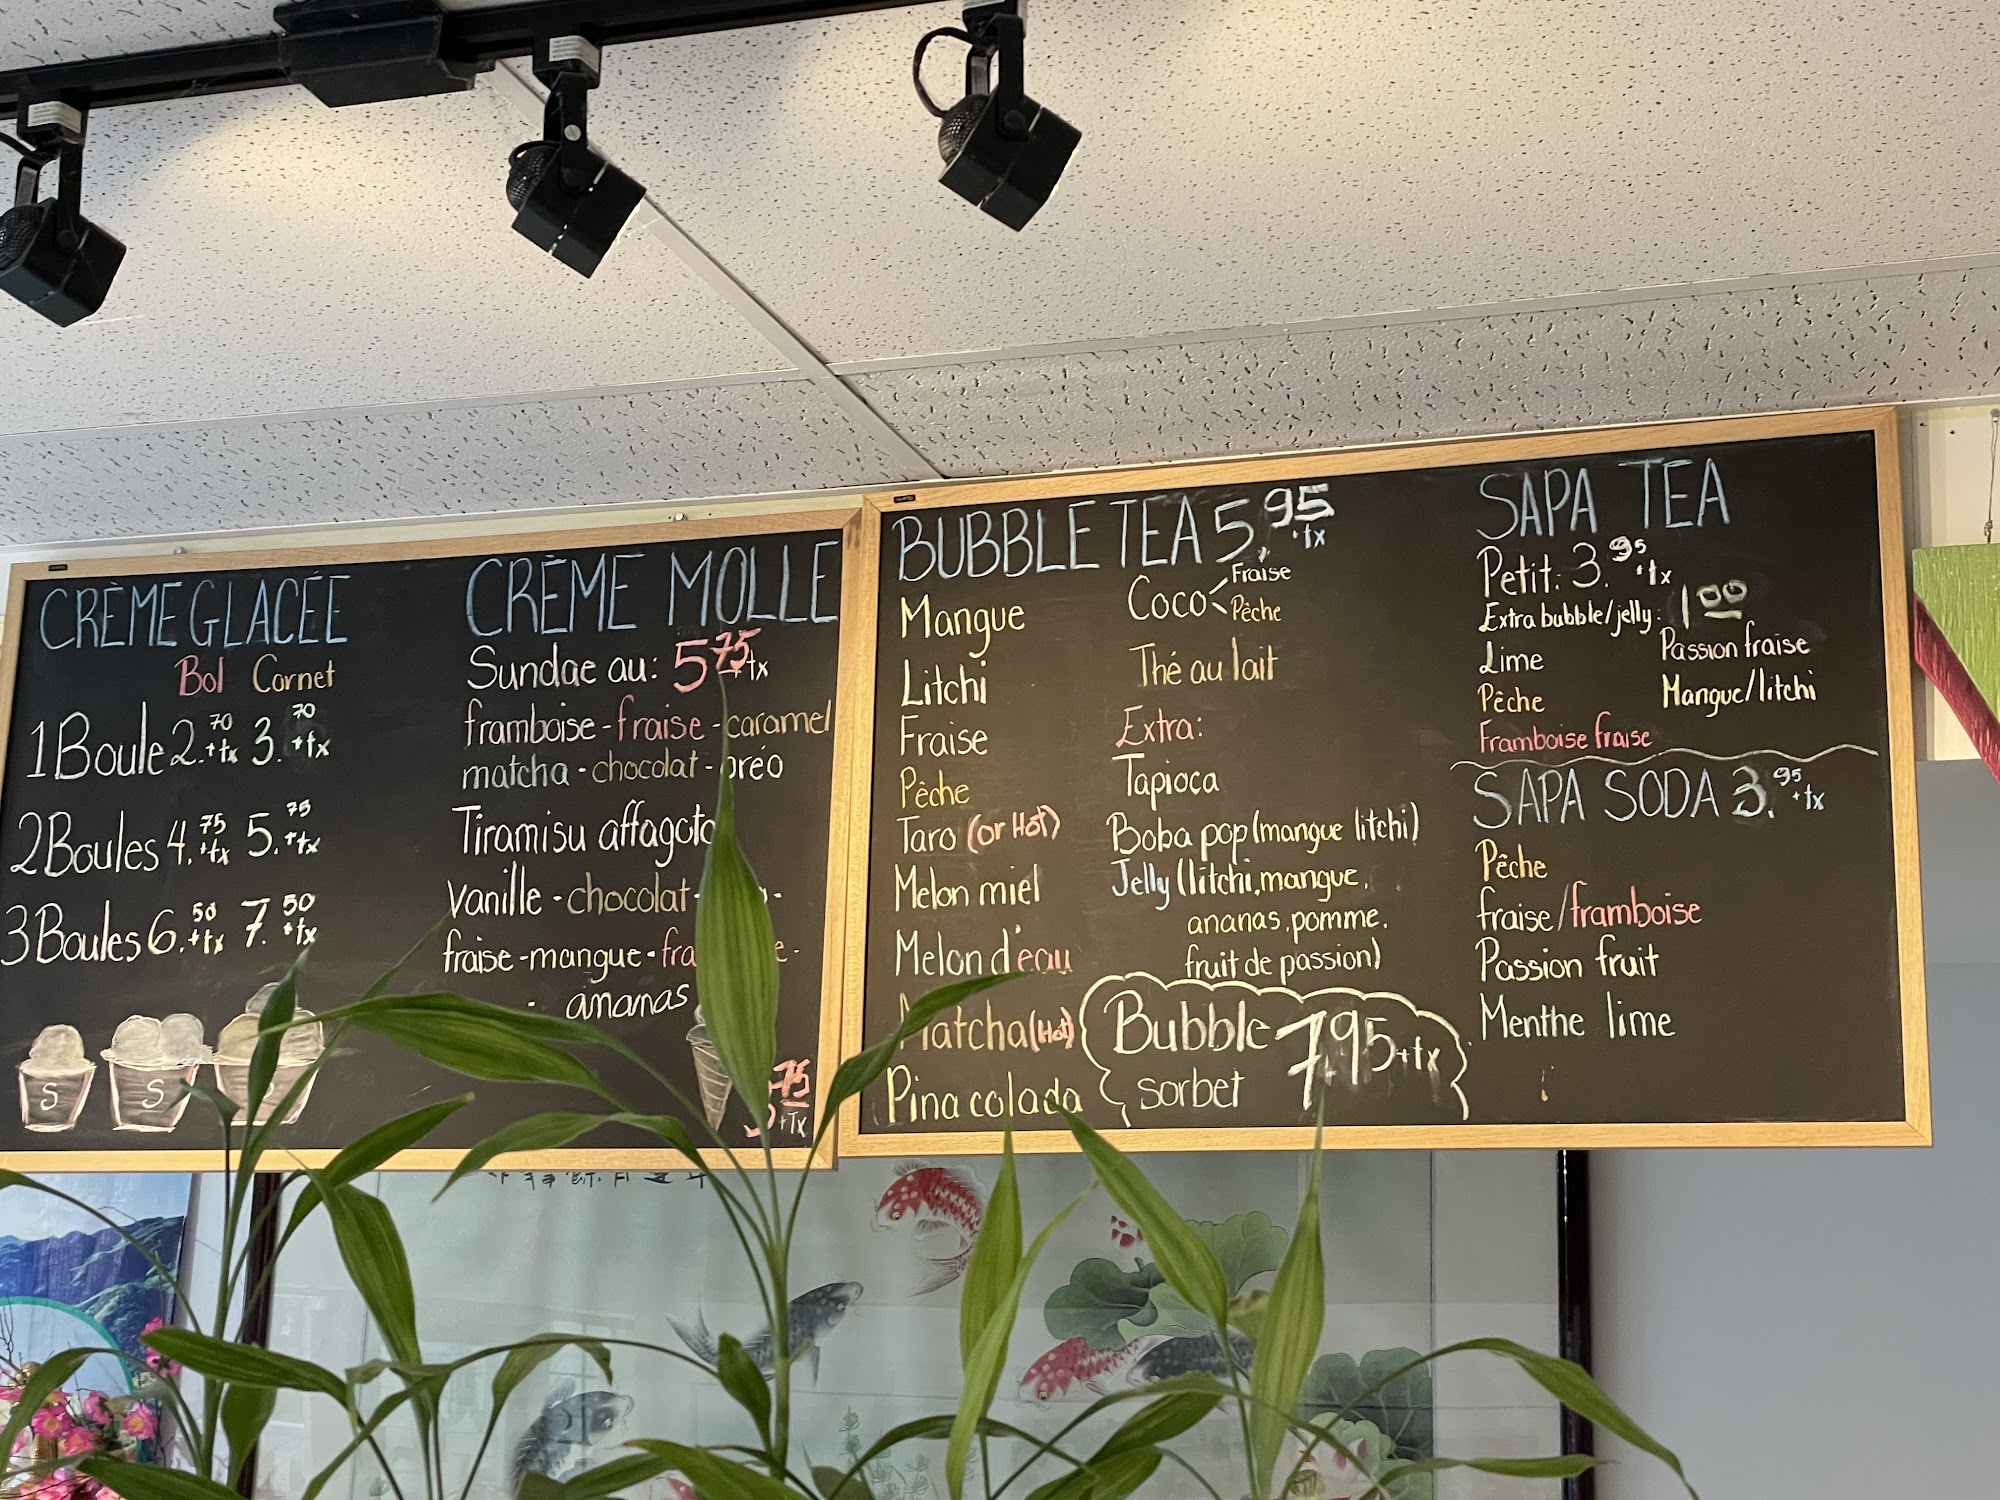 CRÈME GLACÉE
Bol Cornet
1 Boule 2.70+tx 3.70+tx
2 Boules 4.75+tx 5.75+tx
3 Boules 6.50+tx 7.50+tx
S S
CRÈME MOLLE
Sundae au: 5.75+tx
framboise - fraise - caramel
matcha - chocolat - oréo
Tiramisu affagoto
Vanille - chocolat -
fraise - mangue -
ananas
75
+Tx
BUBBLE TEA 5.95+tx
Mangue
Litchi
Fraise
Pêche
Taro (or Hot)
Melon miel
Melon d'eau
Matcha (Hot)
Pina colada
Coco < Fraise
Pêche
Thé au lait
Extra:
Tapioca
Boba pop (mangue litchi)
Jelly (litchi, mangue,
ananas, pomme,
fruit de passion)
Bubble 7.95+tx
sorbet
SAPA TEA
Petit: 3.95+tx
Extra bubble/jelly: 1.00
Lime
Pêche
Framboise fraise
Passion fraise
Mangue/litchi
SAPA SODA 3.95+tx
Pêche
fraise/framboise
Passion fruit
Menthe lime